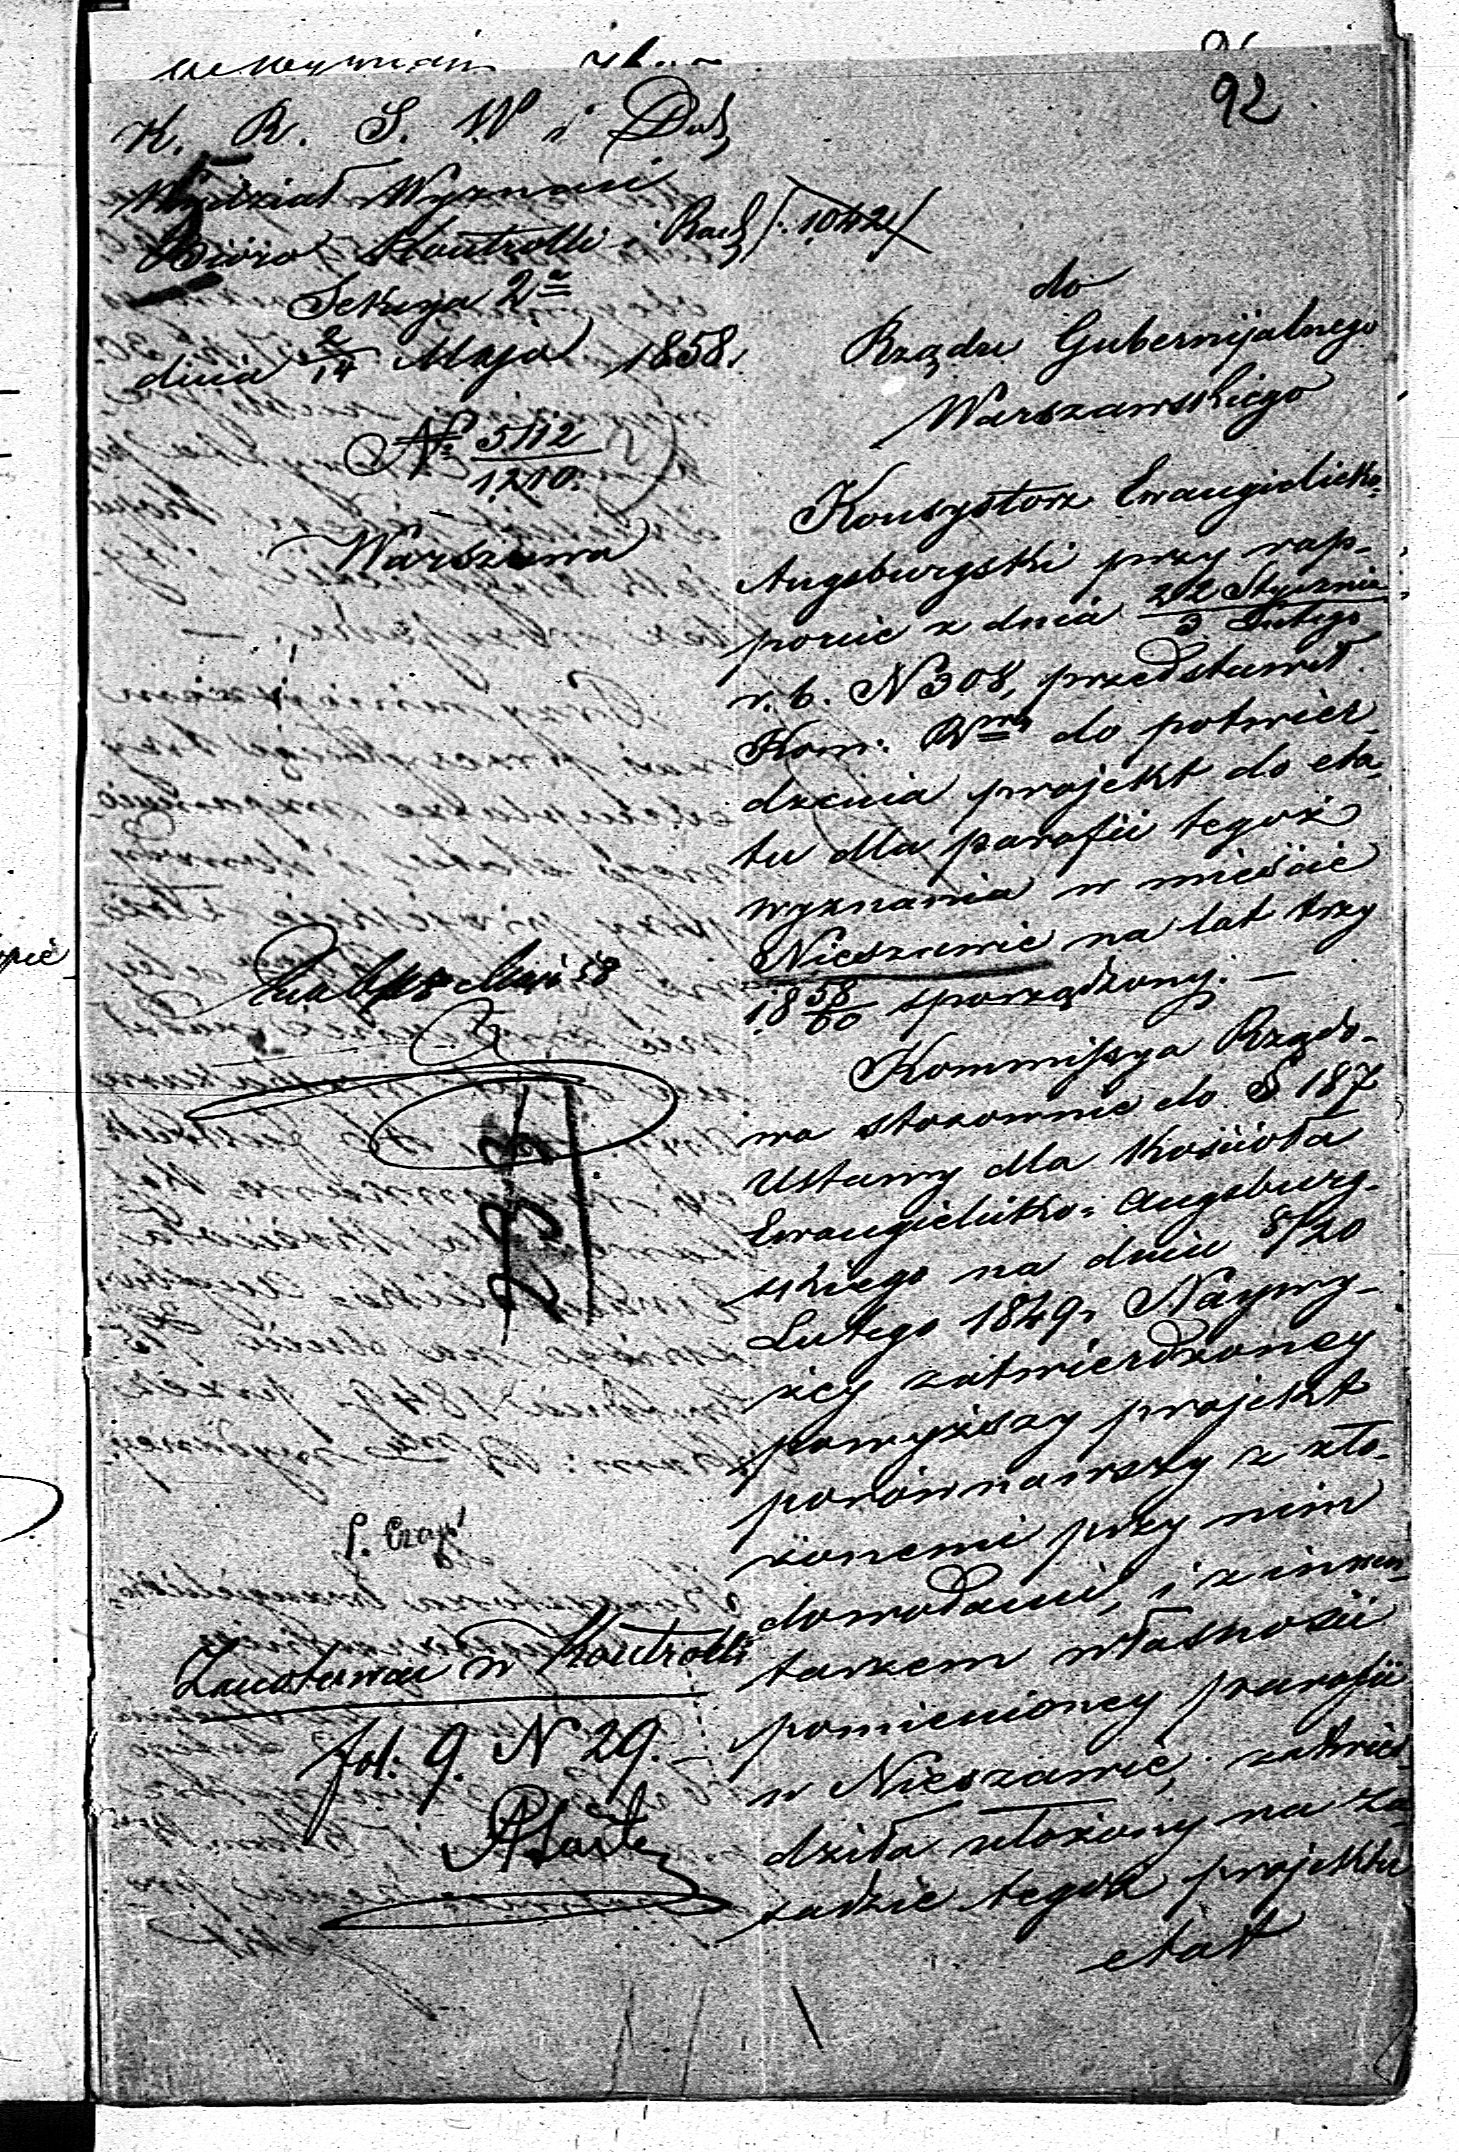 92
K. R. S. W i Duch
Wydział Wyznań
Bióro Kontrolli i Rach /: 1042 /
Sekcya 2a
dnia 2/14 Maja 1858.
№ 5112/1210.
Warszawa
do
Rządu Gubernijalnego
Warszawskiego
Konsystorz Ewangielicko=
Augsburgski przy rap-
porcie z dnia 22 Stycznia / 3 Lutego
r. b. N 308, przedstawił
Kom: Rwej do potwier-
dzenia projekt do eta-
tu dla parafii tegoż
wyznania w mieście
Nieszawie na lat trzy
18 58/60 sporządzony. —
Kommissya Rządo-
wa stosownie do § 187
Ustawy dla Kościoła
Ewangielicko= Augsburg-
skiego na dniu 8/20
Lutego 1849 r Naywy-
żey zatwierdzoney
powyższy projekt
porównawszy z zło-
żonemi przy nim
dowodami, i z inwen-
tarzem własności
pomienioney parafii
w Nieszawie, zatwier-
dziła ułożony na za-
sadzie tegoż projektu
etat
58
233
Zanotowano w Kontrolli
fol: 9. N 29.